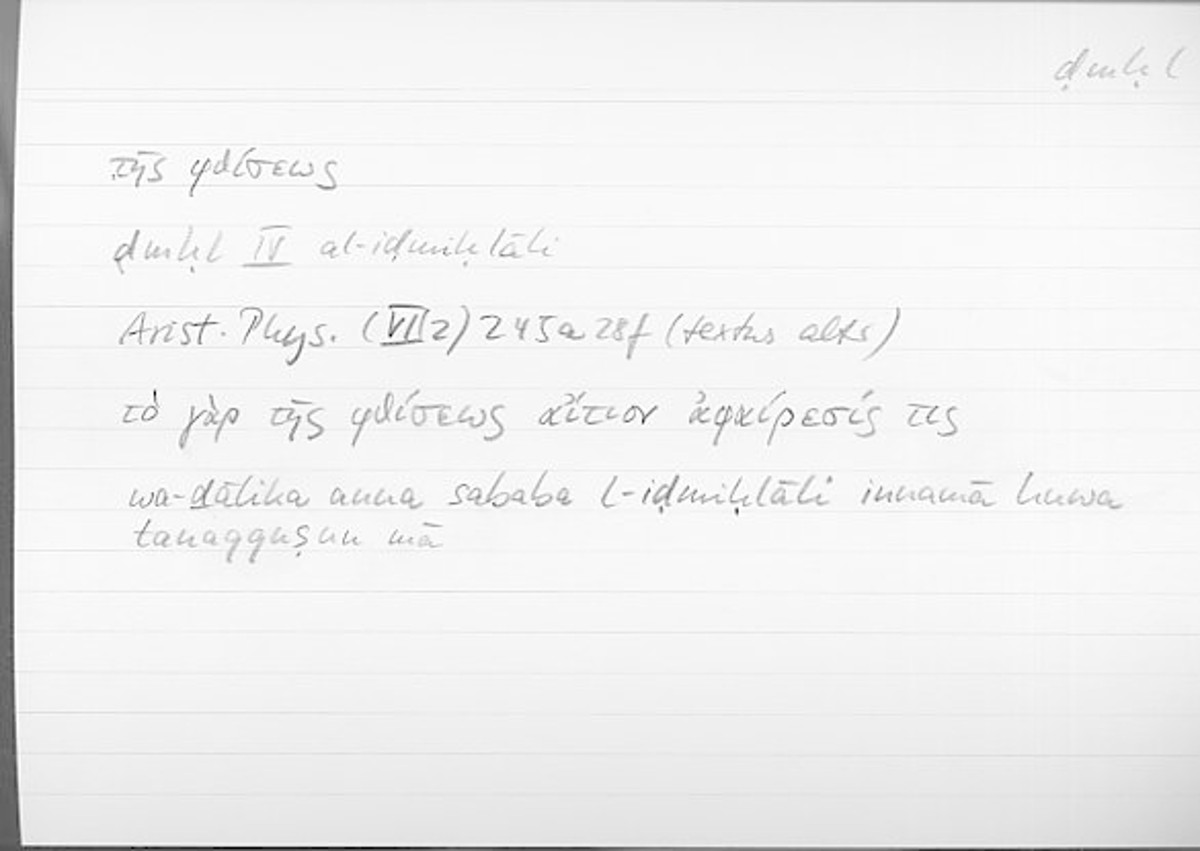 ḍmḥl
τῆς φθίσεως
ḍmḥl IV al-iḍmiḥlāli
Arist. Phys. (VII 2) 245a28f (textus alter)
τὸ γὰρ τῆς φθίσεως αἴτιον ἀφαίρεσίς τις
wa-ḏālika anna sababa l-iḍmiḥlāli innamā huwa
tanaqquṣun mā